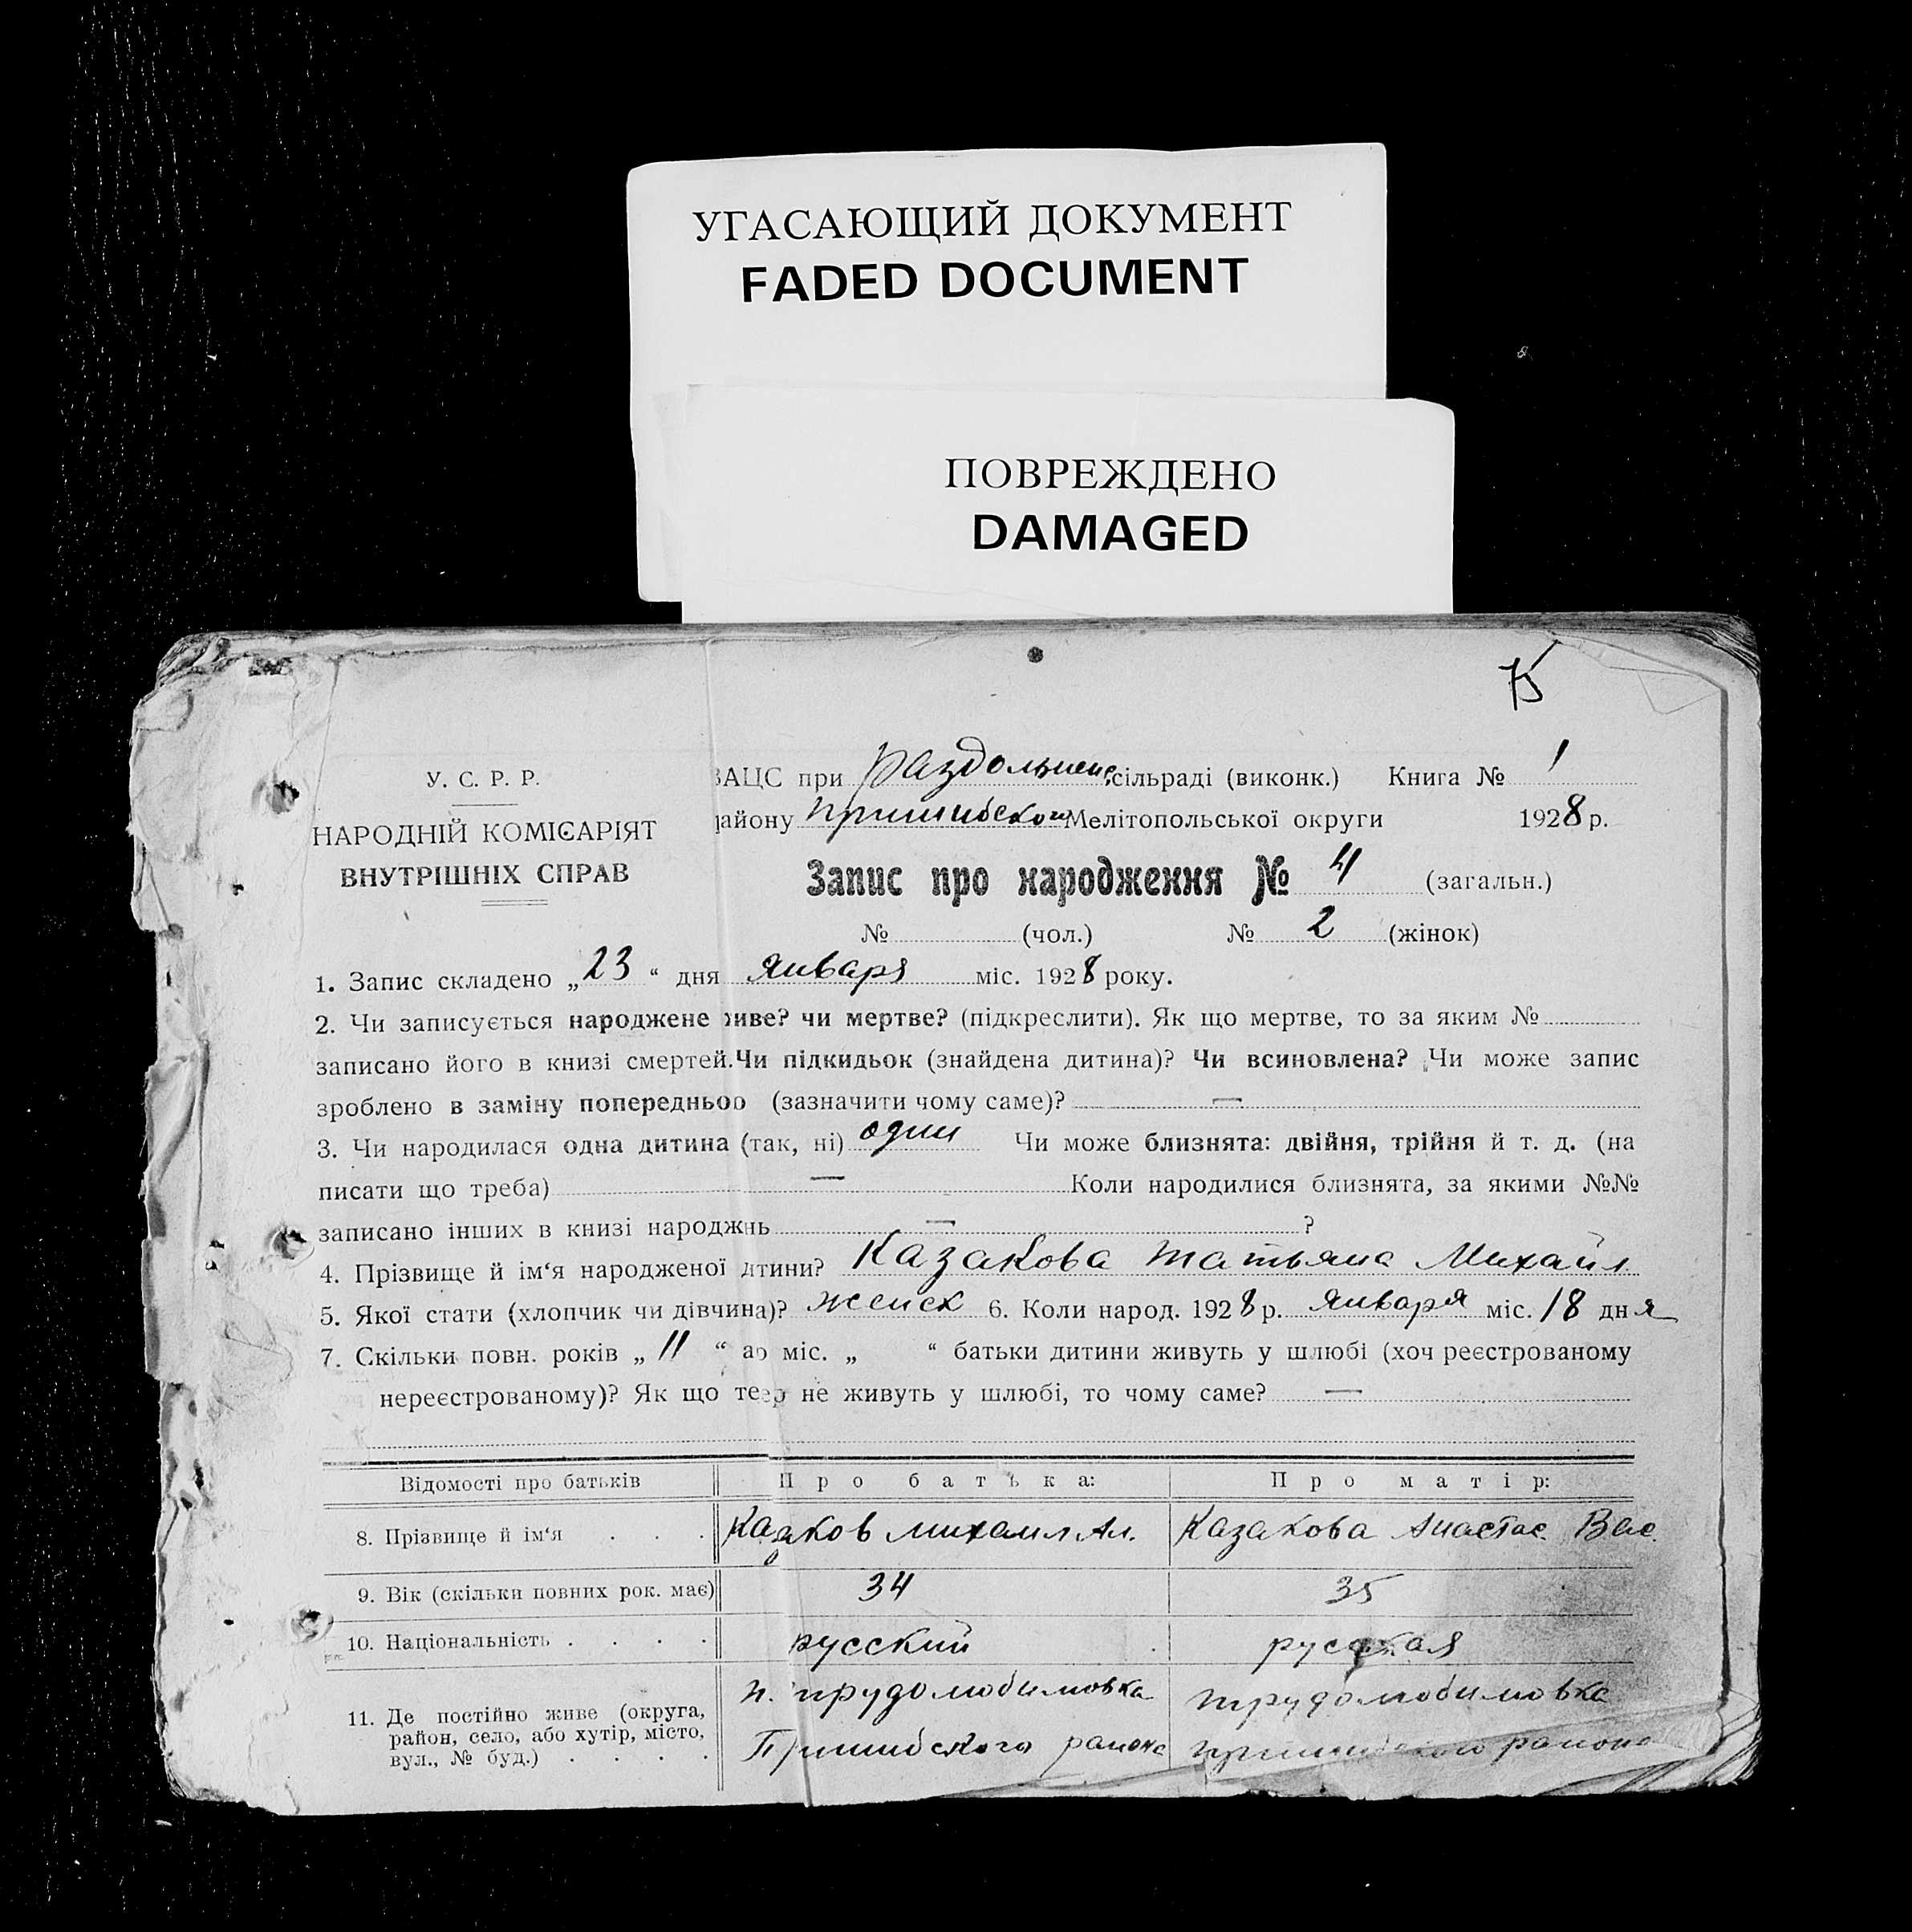 УГАСАЮЩИЙ ДОКУМЕНТ
FADED DOCUMENT
ПОВРЕЖДЕНО
DAMAGED
У. С. Р. Р.
НАРОДНІЙ КОМІСАРІЯТ
ВНУТРІШНІХ СПРАВ
ЗАЦС при Раздольненс. сільраді (виконк.) Книга № 1
району Пришибской Мелітопольської округи 1928 р.
Запис про народження № 4 (загальн.)
№ (чол.) № 2 (жінок)
1. Запис складено „23“ дня Января міс. 1928 року.
2. Чи записується народжене живе? чи мертве? (підкреслити). Як що мертве, то за яким №
записано його в книзі смертей. Чи підкидьок (знайдена дитина)? Чи всиновлена? Чи може запис
зроблено в заміну попередньоо (зазначити чому саме)? —
3. Чи народилася одна дитина (так, ні) один Чи може близнята: двійня, трійня й т. д. (на
писати що треба) — Коли народилися близнята, за якими №№
записано інших в книзі народжнь — ?
4. Прізвище й ім‘я народженої дтини? Казакова Татьяна Михайл
5. Якої стати (хлопчик чи дівчина)? женск 6. Коли народ. 1928 р. Января міс. 18 дня
7. Скільки повн. років „11“ або міс. „ “ батьки дитини живуть у шлюбі (хоч реєстрованому
нереєстрованому)? Як що теер не живуть у шлюбі, то чому саме? —
Відомості про батьків Про батька: Про матір:
8. Прізвище й ім‘я . . . Казаков Михаил Ал. Казакова Анастас. Вас.
9. Вік (скільки повних рок. має) 34 35
10. Національність . . . . русский русская
11. Де постійно живе (округа, район, село, або хутір, місто, вул., № буд.) . . . . п. Трудолюбимовка Трудолюбимовка
Пришибского района Пришибского района